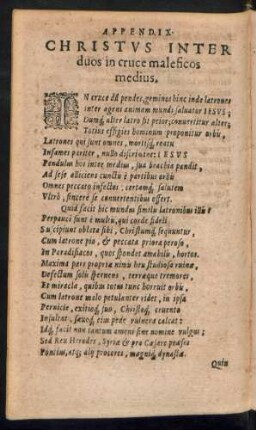 APPENDIX.
CHRISTVS INTER
duos in cruce maleficos
medius.
IN cruce dū pendes, geminos hinc inde latrones
inter agens animam mundi saluator IESVS;
Cumq; alter latro sit peior, conuertitur alter,
Totius effigies hominum proponitur orbis,
Latrones qui sunt omnes, mortisq; reatu
Infames pariter, nullo discrimine: IESVS
Pendulus hos inter medius, sua brachia pandit,
Ad sese alliciens cunctis è partibus orbis
Omnes peccato infectos; certamq; salutem
Vltrò, sincerè se conuertentibus offert.
Quid facit hic mundus similis latronibus illis?
Perpauci sunt è multis, qui corde fideli
Suscipiunt oblata sibi, Christumq; sequuntur,
Cum latrone pio, & peccata priora perosi,
In Paradisiacos, quos spondet amabilis, hortos.
Maxima pars propria nimis heu studiosa ruinæ,
Defectum solis spernens, terræque tremores,
Et miracla, quibus totus tunc horruit orbis,
Cum latrone malo petulanter ridet, in ipsa
Pernicie, exitioq; suo, Christoq; cruento
Insultat, sæuoq; eius pede vulnera calcat:
Idq; facit non tantum amens sine nomine vulgus;
Sed Rex Herodes, Syriæ & pro Cæsare præses
Pontius, atq; alij proceres, magniq; dynastæ.
Quin